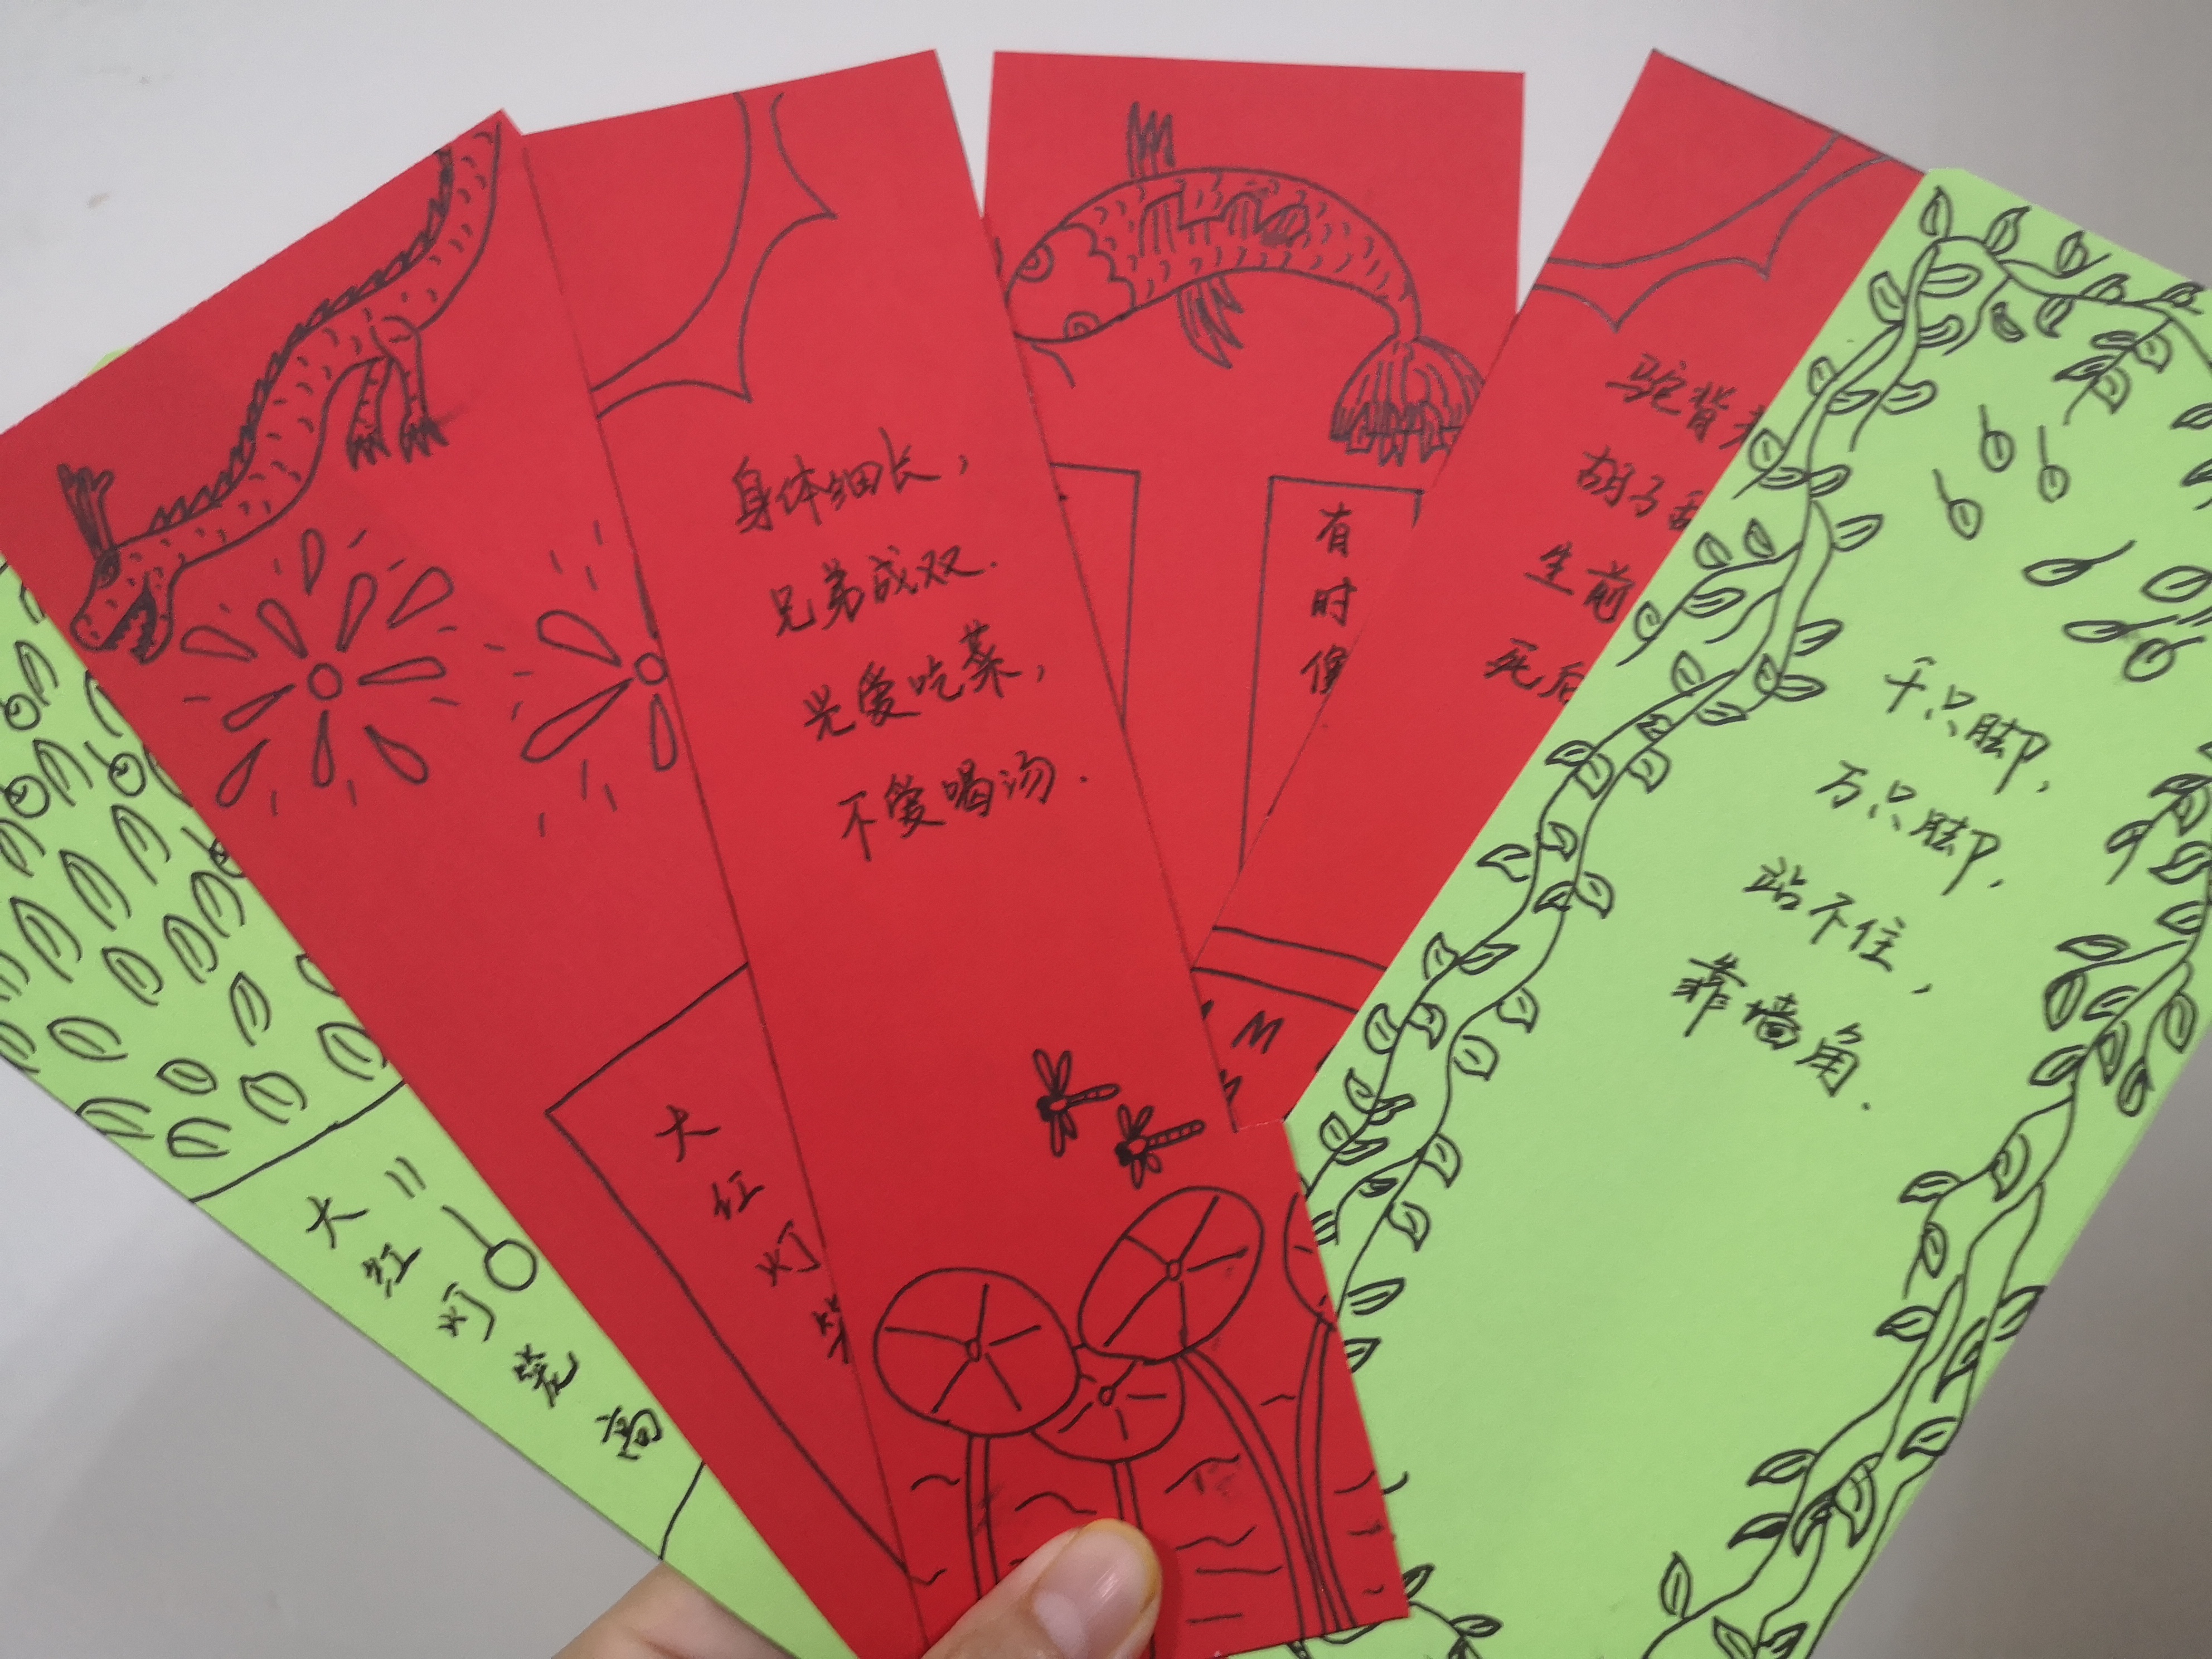 大红灯笼高
大红灯笼
身体细长，
兄弟成双.
光爱吃菜，
不爱喝汤.
有时像
驼背
胡子
生前
死后
千只脚，
万只脚.
站不住，
靠墙角.